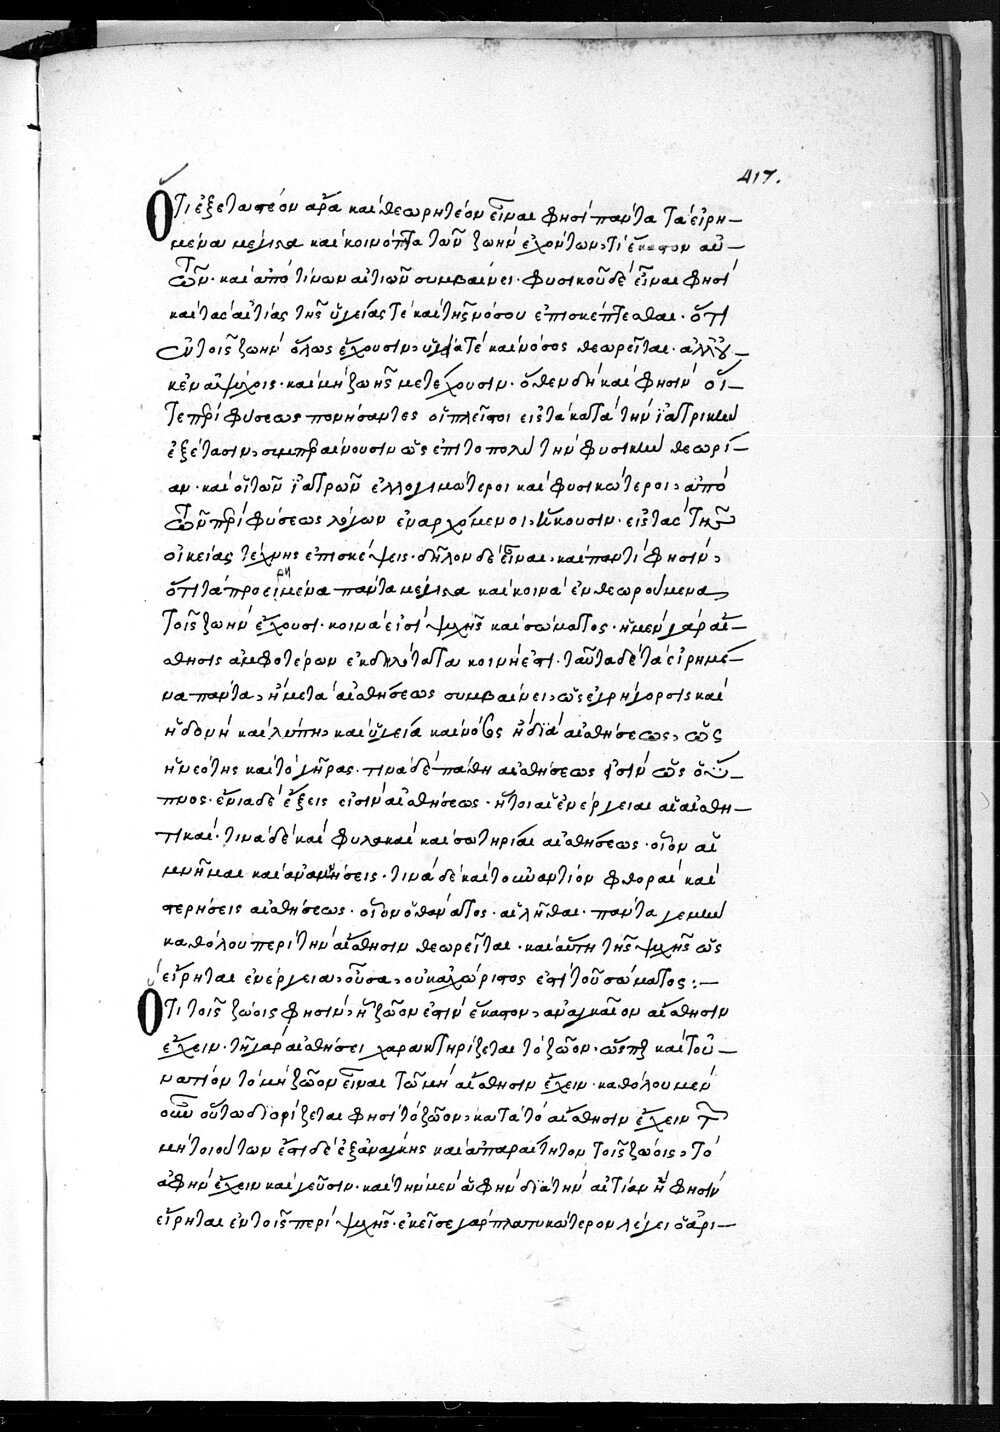 417.
Ὅτι ἐξεταστέον ἄρα καὶ θεωρητέον εἶναι φησὶ πάντα τὰ εἰρη-
μένα μέγιστα καὶ κοινότατα τῶν ζωὴν ἐχόντων, τί ἕκαστον αὐ-
τῶν· καὶ ἀπὸ τίνων αἰτιῶν συμβαίνει· φυσικοῦ δὲ εἶναι φησὶ
καὶ τὰς αἰτίας τῆς ὑγείας τὲ καὶ τῆς νόσου ἐπισκέπτεσθαι· ὅτι
ἐν τοῖς ζωὴν ὅλως ἔχουσιν, ὑγεία τὲ καὶ νόσος θεωρεῖται· ἀλλ' οὐ-
κ ἐν ἀψύχοις· καὶ μὴ ζωῆς μετέχουσιν· ὅθεν δὴ καὶ φησὶν οἵ-
τε περὶ φύσεως πονήσαντες οἱ πλεῖστοι εἰς τὰ κατὰ τὴν ἰατρικὴν
ἐξέτασιν, συμπεραίνουσιν ὡς ἐπιτοπολὺ τὴν φυσικὴν θεωρί-
αν· καὶ οἱ τῶν ἰατρῶν ἐλλογιμώτεροι καὶ φυσικώτεροι, ἀπὸ
τῶν περὶ φύσεως λόγων ἐναρχόμενοι, ἥκουσιν· εἰς τὰς τῆς
οἰκείας τέχνης ἐπισκέψεις· δῆλον δὲ εἶναι, καὶ παντὶ φησὶν,
ὅτι τὰ προειρημένα πάντα μέγιστα καὶ κοινὰ ἐνθεωρούμενα
τοῖς ζωὴν ἔχουσι· κοινὰ εἰσὶ ψυχῆς καὶ σώματος· ἡ μὲν γὰρ αἴ-
σθησις ἀμφοτέρων ἐκδηλότατα κοινή ἐστι· ταῦτα δὲ τὰ εἰρημέ-
να πάντα, ἢ μετὰ αἰσθήσεως συμβαίνει, ὡς ἐγρήγορσις καὶ
ἡδονὴ καὶ λύπη, καὶ ὑγεία καὶ νόσος ἢ διὰ αἰσθήσεως, ὡς
ἡ νεότης καὶ τὸ γῆρας· τινὰ δὲ πάθη αἰσθήσεως εἰσὶν ὡς ὁ ὕ-
πνος· ἔνια δὲ ἕξεις εἰσὶν αἰσθήσεως· ἤτοι αἱ ἐνέργειαι αἱ αἰσθη-
τικαὶ· τινὰ δὲ καὶ φυλακαὶ καὶ σωτηρίαι αἰσθήσεως· οἷον αἱ
μνῆμαι καὶ ἀναμνήσεις· τινὰ δὲ καὶ τοὐναντίον φθοραὶ καὶ
στερήσεις αἰσθήσεως· οἷον ὁ θάνατος· αἱ λῆθαι· πάντα γε μὴν
καθόλου περὶ τὴν αἴσθησιν θεωρεῖται· καὶ αὕτη τῆς ψυχῆς ὡς
εἴρηται ἐνέργεια, οὖσα, οὐκ ἀχώριστος ἐστὶ τοῦ σώματος :-
Ὅτι τοῖς ζώοις φησὶν, ἢ ζῶον ἐστὶν ἕκαστον, ἀναγκαῖον αἴσθησιν
ἔχειν· τῇ γὰρ αἰσθήσει χαρακτηρίζεται τὸ ζῶον· ὥσπερ καὶ τοὐ-
ναντίον τὸ μὴ ζῶον εἶναι τῶ μὴ αἴσθησιν ἔχειν· καθόλου μὲν
οὖν οὕτω διορίζεται φησὶ τὸ ζῶον, κατὰ τὸ αἴσθησιν ἔχειν τῶν
μὴ τοιούτων ἔστι δὲ ἐξανάγκης καὶ ἀπαραίτητον τοῖς ζώοις, τὸ
ἀφὴν ἔχειν καὶ γεῦσιν· καὶ τὴν μὲν ἁφὴν διὰ τὴν αἰτίαν ἣ φησὶν
εἴρηται ἐν τοῖς περὶ ψυχῆς· ἐκεῖσε γὰρ πλατυκώτερον λέγει ὁ ἀρι-